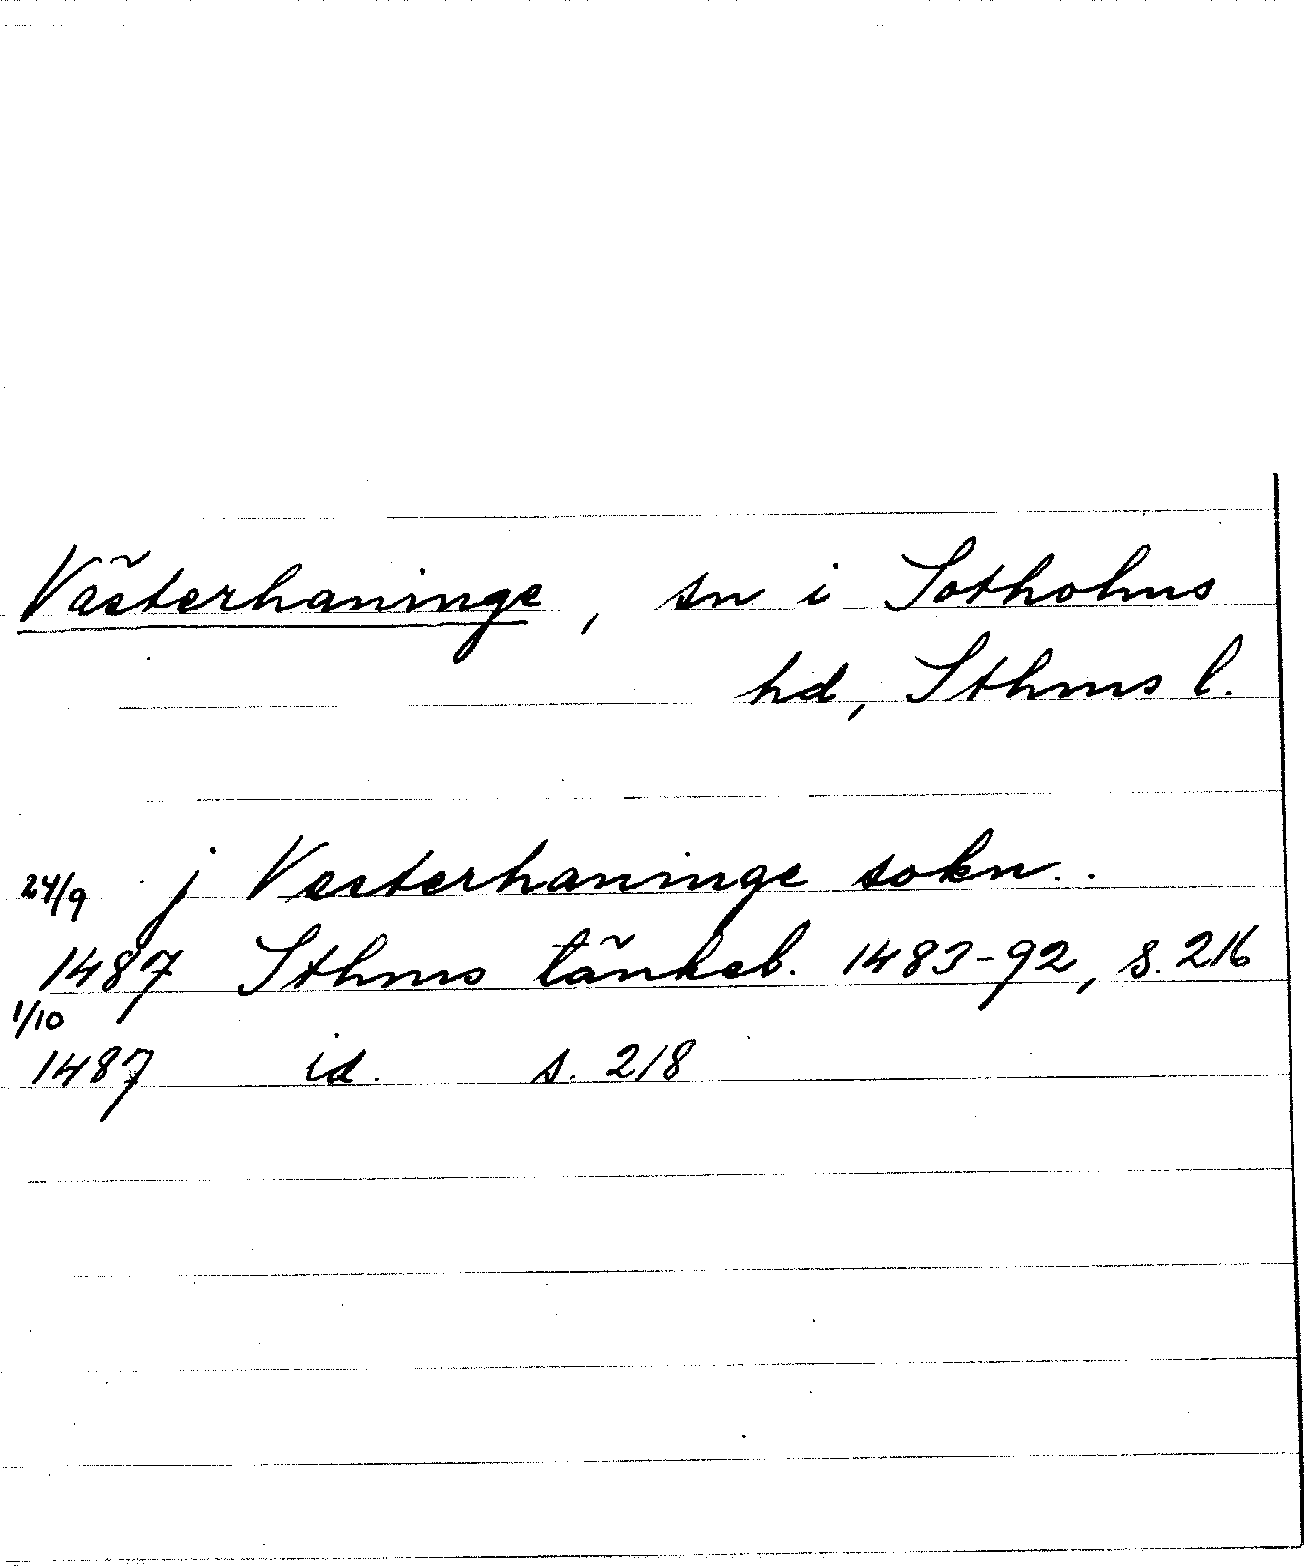 Västerhaninge, sn i Sotholms
hd, Sthms l.
24/9 j Vesterhaninge sokn..
1487 Sthms tänkeb. 1483-92, s. 216
1/10
1487 id. s. 218